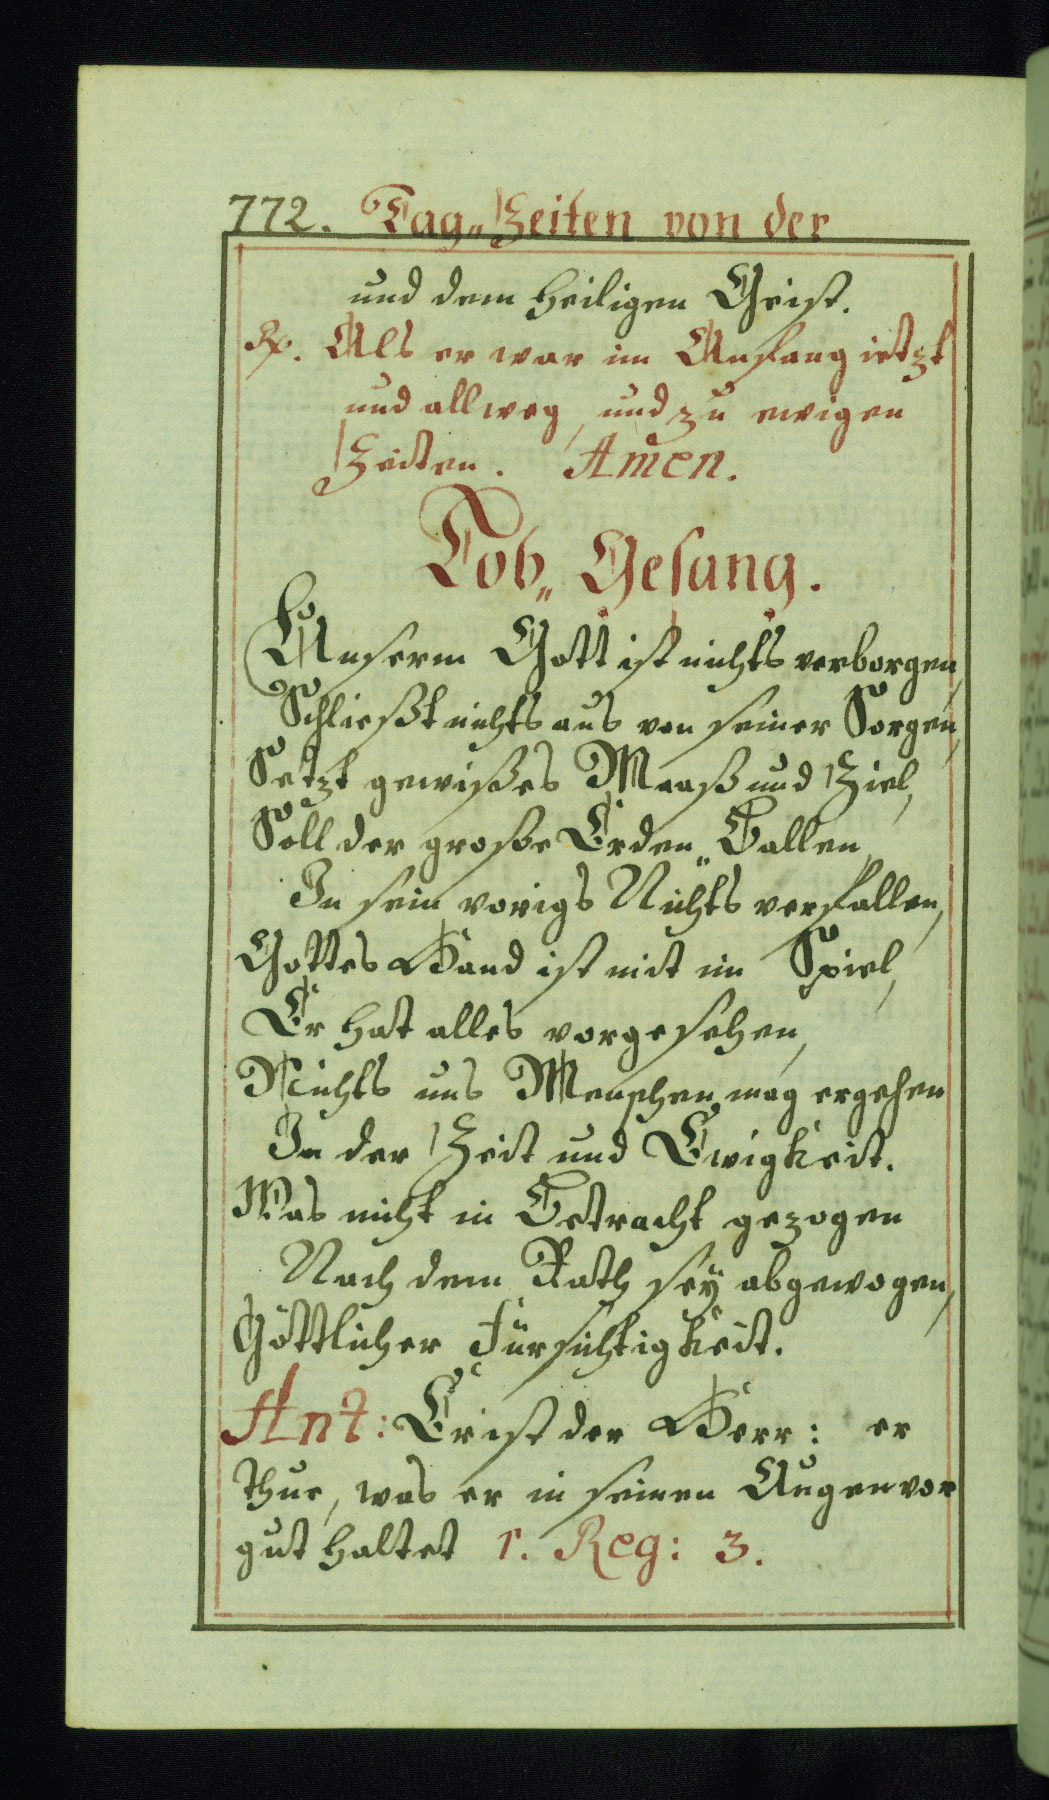 772. Tag„ Zeiten von der
und dem heiligen Geist.
R. Als er war im Anfang ietzt
und allweg, und zu ewigen
Zeiten. Amen.
Lob„ Gesang.
Unserm Gott ist nichts verborgen,
Schliesst nichts aus von seiner Sorgen,
Setzt gewisses Maass und Ziel,
Soll der grosse Erden„ Ballen
In sein vorigs Nichts verfallen,
Gottes Hand ist mit im Spiel,
Er hat alles vorgesehen,
Nichts uns Menschen mag ergehen
In der Zeit und Ewigkeit.
Was nicht in Betracht gezogen
Nach dem Rath seÿ abgewogen,
Göttlicher Fürsichtigkeit.
Ant: Er ist der Herr: er
thue, was er in seinen Augen vor
gut haltet 1. Reg: 3.